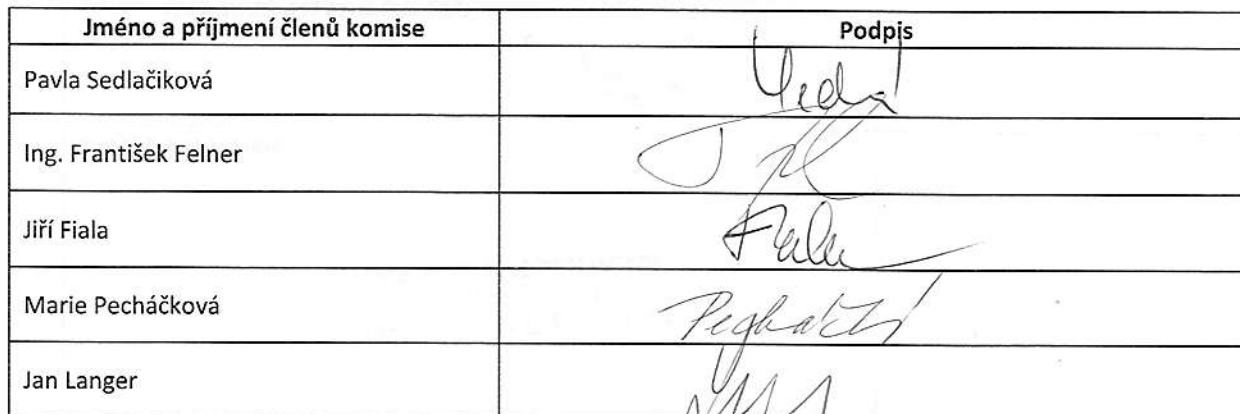 Jméno a příjmení členů komise Podpis
Pavla Sedlačiková
Ing. František Felner
Jiří Fiala
Marie Pecháčková
Jan Langer